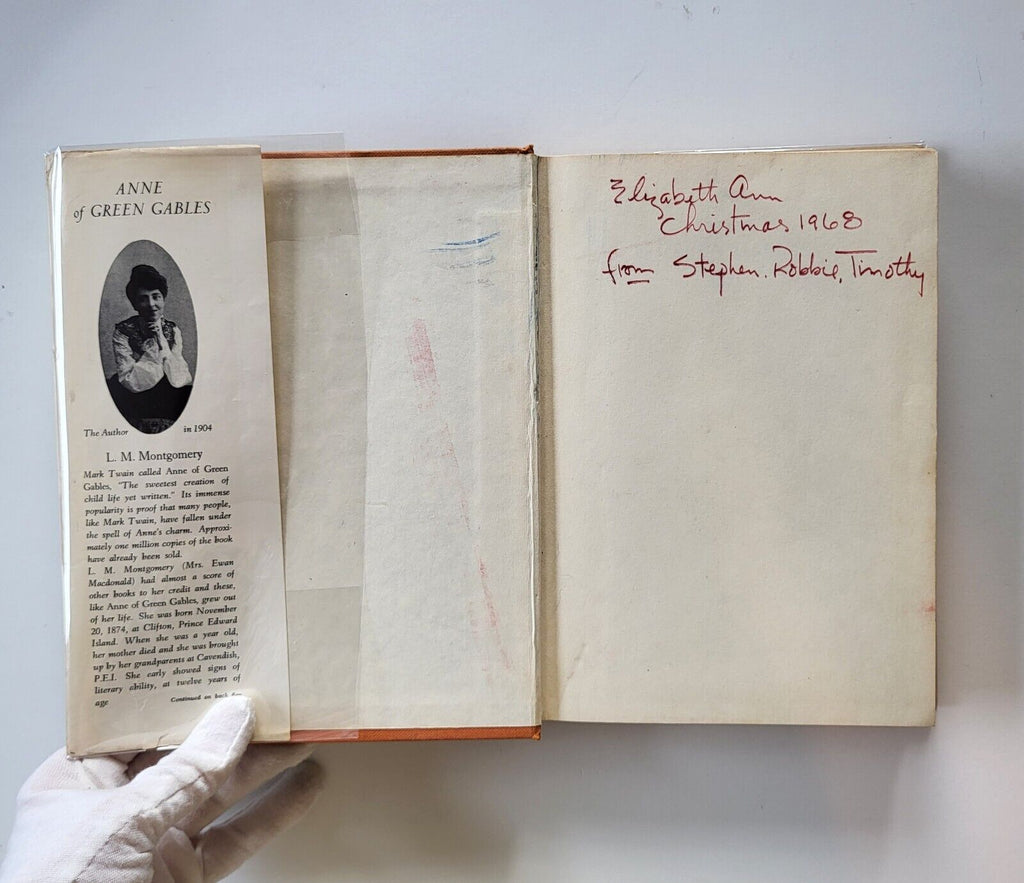 ANNE
of GREEN GABLES
The Author in 1904
L. M. Montgomery
Mark Twain called Anne of Green
Gables, "The sweetest creation of
child life yet written." Its immense
popularity is proof that many people,
like Mark Twain, have fallen under
the spell of Anne's charm. Approxi-
mately one million copies of the book
have already been sold.
L. M. Montgomery (Mrs. Ewan
Macdonald) had almost a score of
other books to her credit and these,
like Anne of Green Gables, grew out
of her life. She was born November
20, 1874, at Clifton, Prince Edward
Island. When she was a year old,
her mother died and she was brought
up by her grandparents at Cavendish,
P.E.I. She early showed signs of
literary ability, at twelve years of
age
Continued on back
Elizabeth Ann
Christmas 1968
from Stephen. Robbie, Timothy